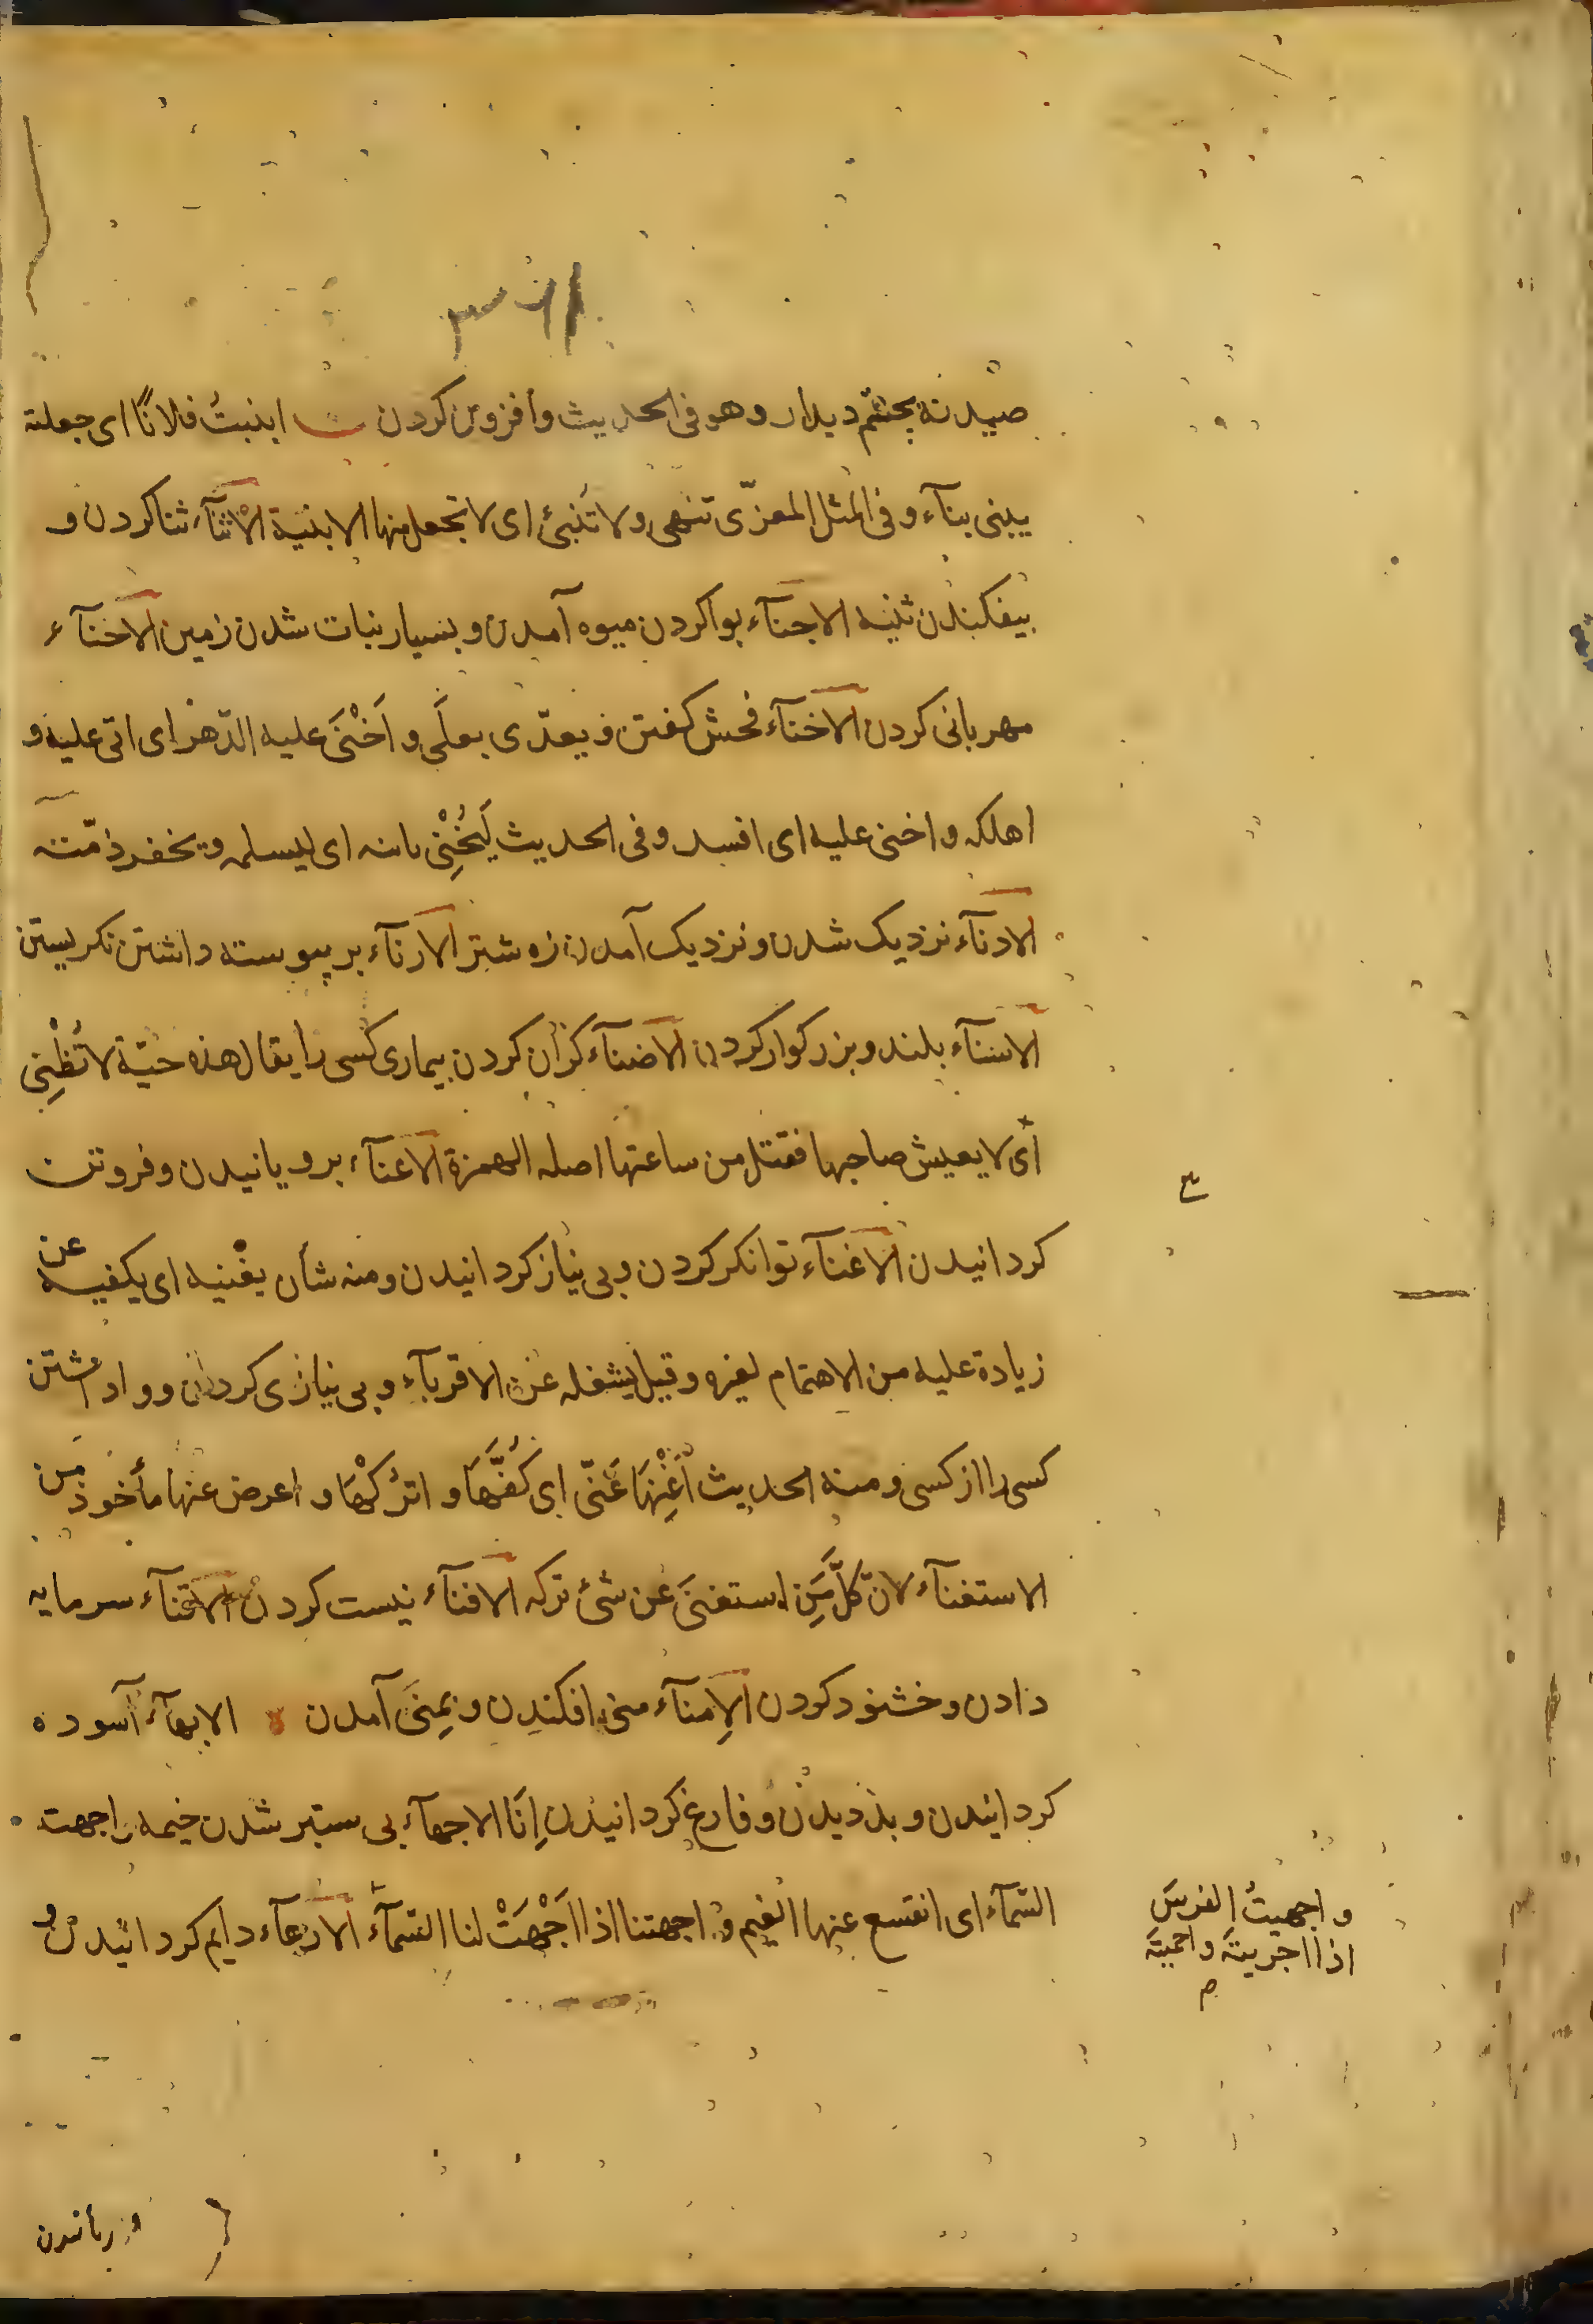 صیدنة بچشم دیدار وهو فی الحدیث وافزونی کردن ابنیتُ فلانًا ای جعلته
یبنی بنآء و فی المثل المعزی تبهی ولا تُبنئ ای لا تجعل منها الابنیة الاثنآء ثنا کردن و
بیفکندن ثنیه الاجنآء بوا کردن میوه آمدن و بسیار نبات شدن زمین الاحنآء
مهربانی کردن الاخنآء فحش کفتن و یعدّی بعلَی و اَخْنَی علیه الدّهر ای اتی علیه و
اهلکه و اخنی علیه ای افسد وفی الحدیث لَیُخْنِی بابنه ای لیسلمه ویخفر ذمّته
الادنآء نزدیک شدن و نزدیک آمدن زه شتر الارنآء بر پیوسته داشتن نکریستن
الاسنآء بلند و بزرکوار کردن الاضنآء کران کردن بیماری کسی را یقال هذه حیّة لا تُطْنِی
أی لا یعیش صاحبها فقتل من ساعتها اصله الهمزة الاعنآء برویانیدن و فروتن
کردانیدن الاغنآء توانکر کردن و بی نیاز کردانیدن ومنه شأن یغْنیه ای یکفیه عن
زیادة علیه من الاهتمام لغیره وقیل یشغله عن الاقربآء و بی نیازی کردن و واداشتن
کسی را از کسی ومنه الحدیث اَغْنِهَا عَنّی ای کُفَّهَا و اترُکْهَا و اعرض عنها مأخوذ من
الاستغنآء لانّ کلّ مَن استغنیَ عن شئ ترکه الافنآء نیست کردن الاقنآء سرمایه
دادن و خشنود کردن الاِمنآء منی افکندن و بمِنَی آمدن الابهآء آسوده
کردانیدن و بذدیدن و فارغ کردانیدن اِنَا الاجهآء بی ستبر شدن خیمه اجهت
السّمآء ای انقشع عنها الغیم و اجهتنا اذا اَجْهَتْ لنا السّمآء الارهآء دایم کردانیدن و
و اجهیتُ الفرسَ
اذا اجریتَه و احمیتَه
م